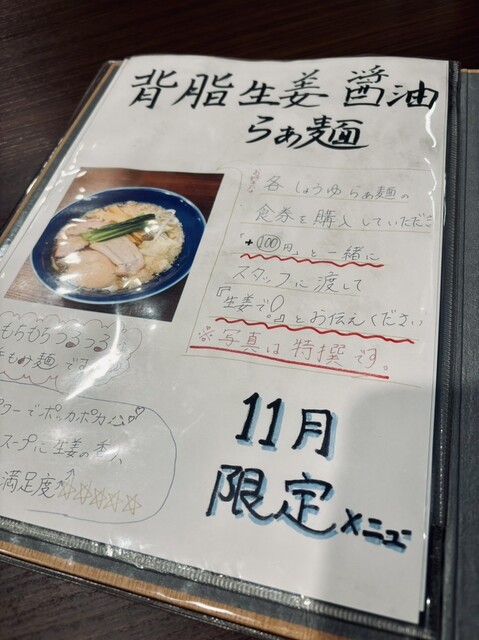 背脂生姜醤油
らぁ麺
各しょうゆらぁ麺の
食券を購入していただき
「+100円」と一緒に
スタッフに渡して
『生姜で!』とお伝えください
※写真は特撰です。
もちもちつるっつる
手もみ麺です
パワーでポッカポカ
スープに生姜の香り
満足度↑☆☆☆☆☆
11月
限定メニュー